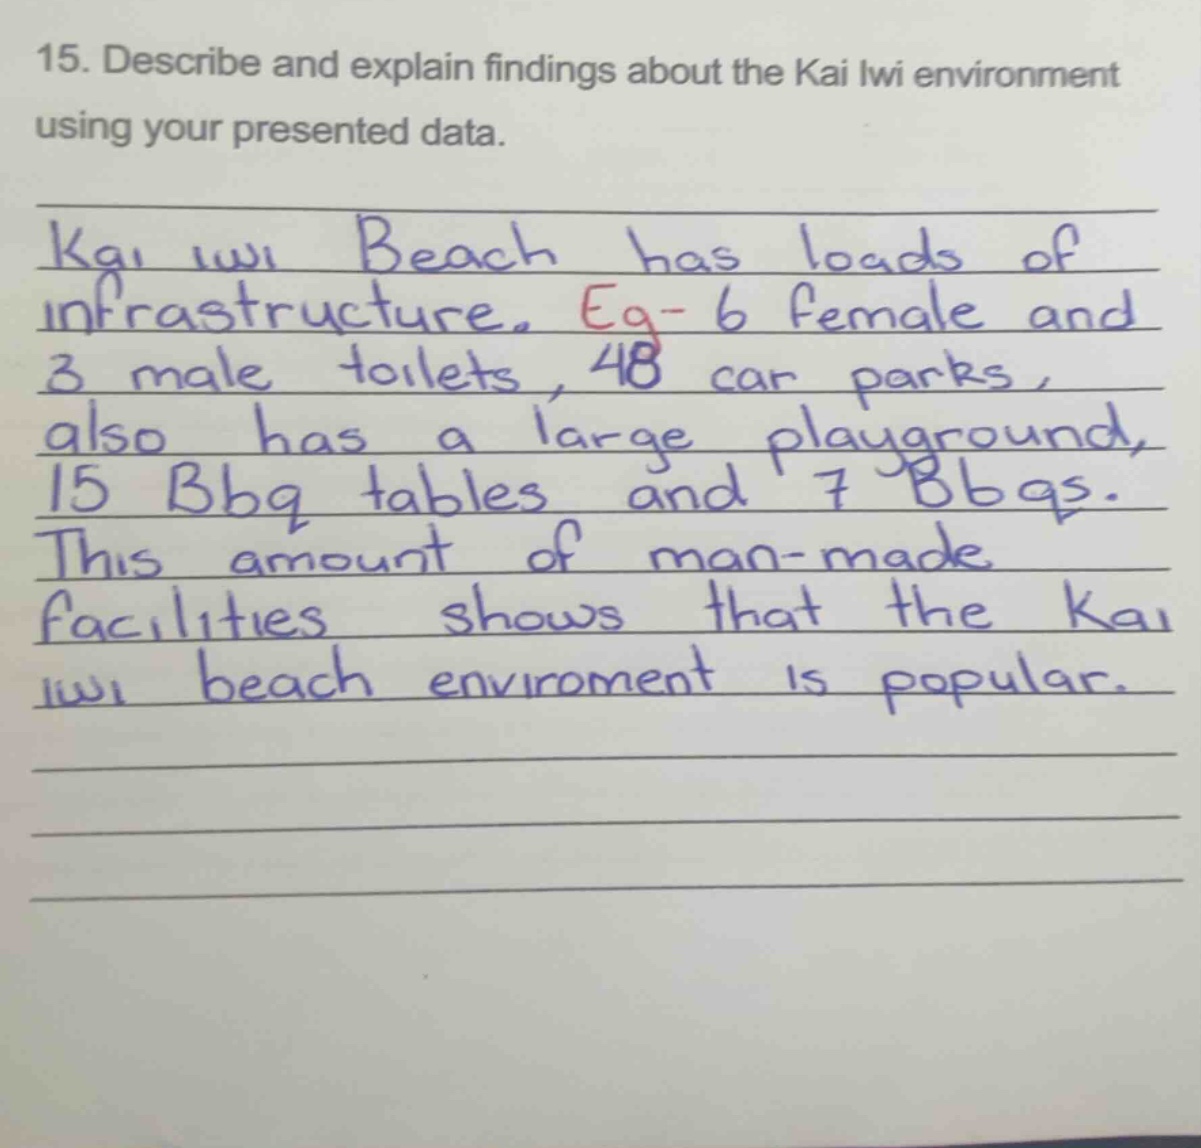 15. Describe and explain findings about the Kai Iwi environment
using your presented data.
Kai iwi Beach has loads of
infrastructure. Eg- 6 female and
3 male toilets, 48 car parks,
also has a large playground,
15 Bbq tables and 7 Bbqs.
This amount of man-made
facilities shows that the Kai
iwi beach enviroment is popular.